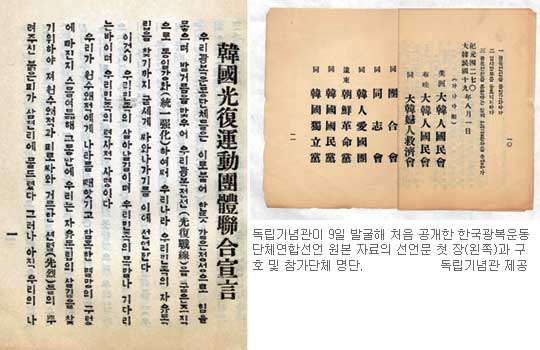 韓國光復運動團體聯合宣言
우리광복운동단체들은 이로붙어 한뜻 갓흔정성으로 힘을
뭉으며 발거름을맞후어 우리광복전선(光復戰線)을 굳은조직
으로 통일강화(統一强化)하여써 우리나라 우리민족의 자유독
립을 찾기까지 굳세게 싸와나가기를 이에 선언한다
이것이 우리민족의 살아날길이며 우리민족의 목말나 기다리
는바이며 우리민족의 력사적 사명이다
우리가 원수왜적에게 나라를 빼앗기고 참혹한 멸망의 구렁
에 빠진지 스물여듧해 그동안에 우리는 자유독립의 살길을 찾
기위하야 저 원수왜적과 피로싸와 거륵한 선렬(先烈)들의 흘
려주신 붉은피가 삼천리에 물드렷다 그러나 아직 우리의 나
一〇
紀元四二七〇
大韓民國十九年八月一日
美洲 大韓人國民會
布哇 大韓人國民會
同 大韓婦人救濟會
同 團合會
同 同志會
同 韓人愛國團
遼東 朝鮮革命黨
同 韓國國民黨
同 韓國獨立黨
一一
독립기념관이 9일 발굴해 처음 공개한 한국광복운동
단체연합선언 원본 자료의 선언문 첫 장(왼쪽)과 구
호 및 참가단체 명단. 독립기념관 제공